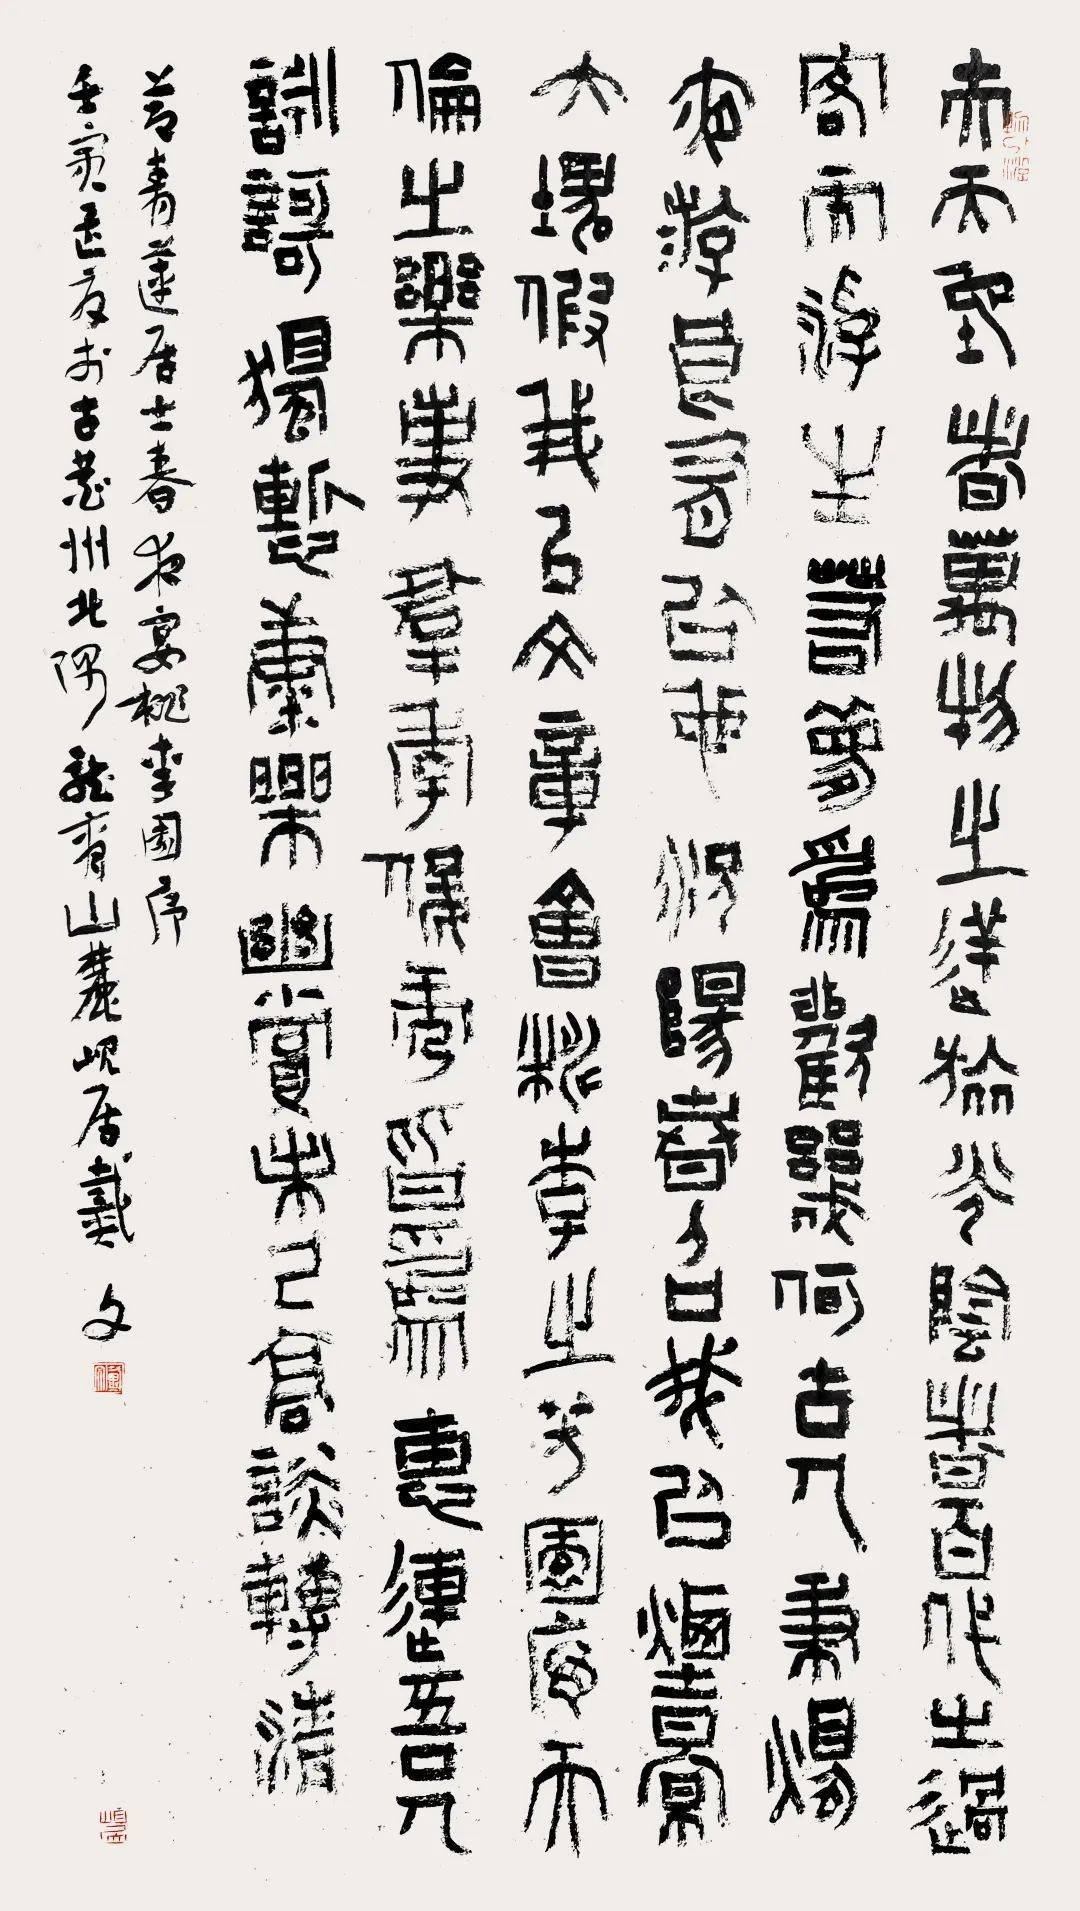 夫天地者萬物之逆旅光陰者百代之過
客而浮生若夢爲歡幾何古人秉燭
夜游良有以也況陽春召我以煙景
大塊假我以文章會桃李之芳園序天
倫之樂事羣季俊秀皆爲惠連吾人
詠歌獨慙康樂幽賞未已高談轉清
節青蓮居士春夜宴桃李園序
壬寅夏於古州北隅龍脊山麓峴居戴文